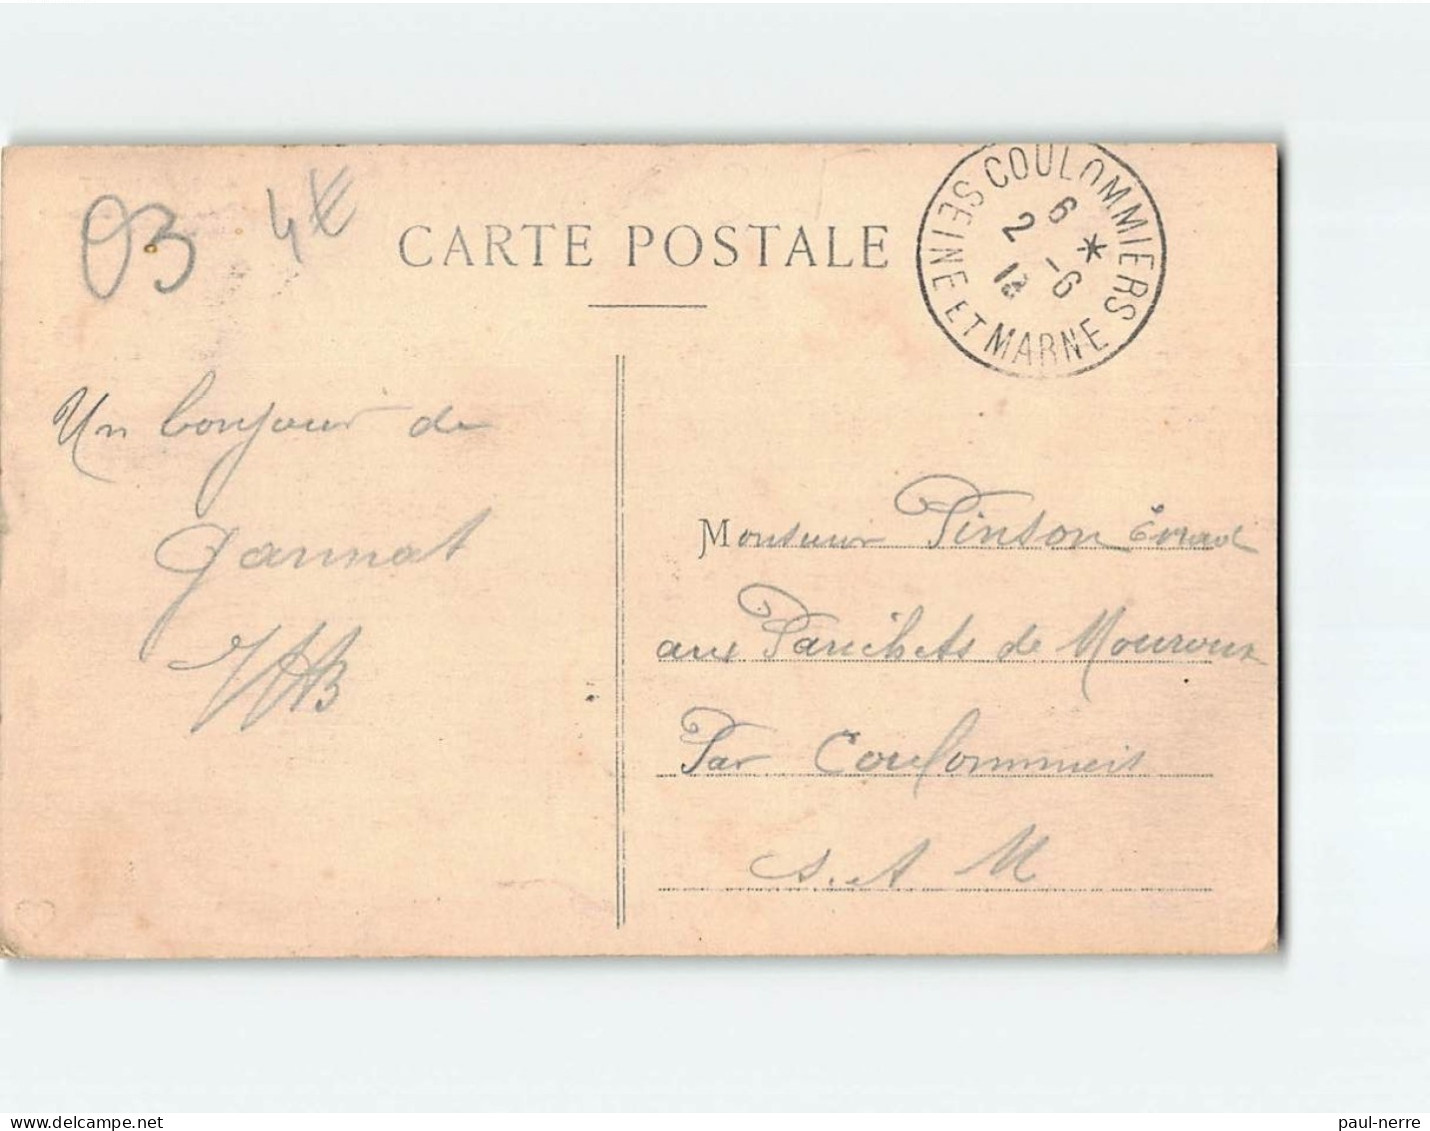 03 4€
CARTE POSTALE
COULOMMIERS
SEINE ET MARNE
6 *
2 -6
Un bonjour de
Gannat
Monsieur Pinson Evrad
aux Parichets de Mouroux
Par Coulommiers
S. et M
paul-nerre